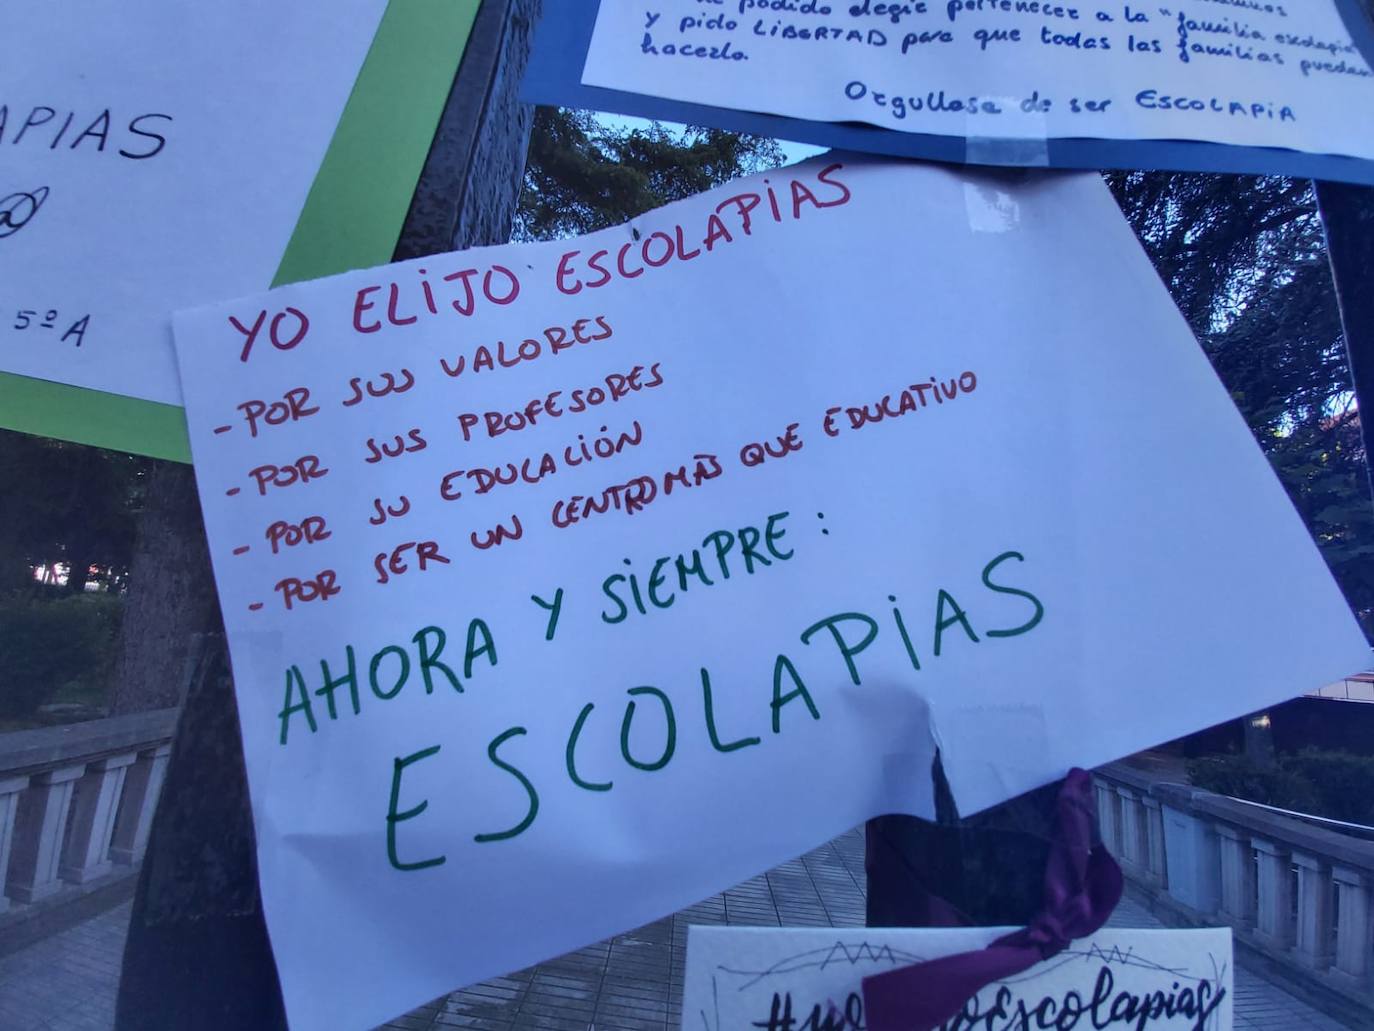 APIAS
5º A
podido elegir pertenecer a la "familia escolapia"
y pido LIBERTAD para que todas las familias puedan
hacerlo.
Orgullosa de ser ESCOLAPIA
YO ELIJO ESCOLAPIAS
- POR SUS VALORES
- POR SUS PROFESORES
- POR SU EDUCACIÓN
- POR SER UN CENTRO MÁS QUE EDUCATIVO
AHORA Y SIEMPRE:
ESCOLAPIAS
Escolapias